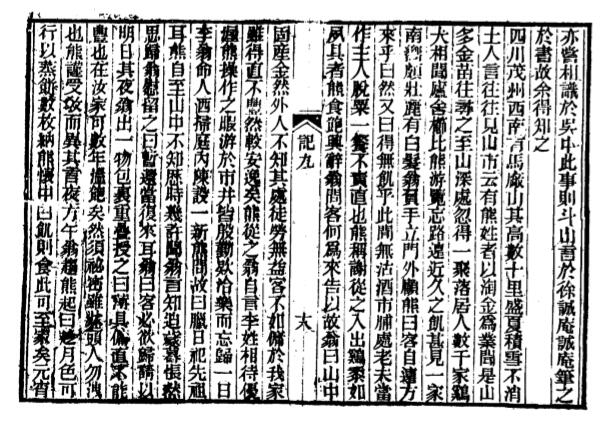 亦嘗相識於吳中此事則斗山言於徐誠庵誠庵筆之
於書故余得知之
四川茂州西南有馬嚴山其高數十里盛夏積雪不消
土人言往往見山市云有熊姓者以淘金爲業聞是山
多金苗往尋之至山深處忽得一聚落居人數千家鷄
犬相聞廬舍櫛比熊游覽忘路遠近久之飢甚見一家
南嚮頗壯麗有白髮翁負手立門外顧熊曰客自遠方
來乎曰然又曰得無飢乎此間無沽酒市脯處老夫當
作主人脫粟一餐不責直也熊稱謝從之入出鷄黍如
夙具者熊食飽興辭翁問客何爲來告以故翁曰山中
固產金然外人不知其處徒勞無益客不如傭於我家
雖得直不豐然較安逸矣熊從之翁自言李姓相待優
渥熊操作之暇游於市井皆殷勤款洽樂而忘歸一日
李翁命人洒掃庭內陳設一新熊問故曰臘日祀先祖
耳熊自至山中不知歷時幾許聞翁言知迫歲暮悵然
思歸翁慰留之曰暫還當復來耳翁曰客必欲歸請以
明日其夜翁出一物包裹重疊授之曰所具傭直不能
豐也在汝家可數年溫飽矣然須祕密雖妻孥前人勿洩
也熊謹受教而異其言夜方午翁趣熊起曰月色可
行以蒸餅數枚納熊懷中曰飢則食此可至家矣元宵
記九
十八